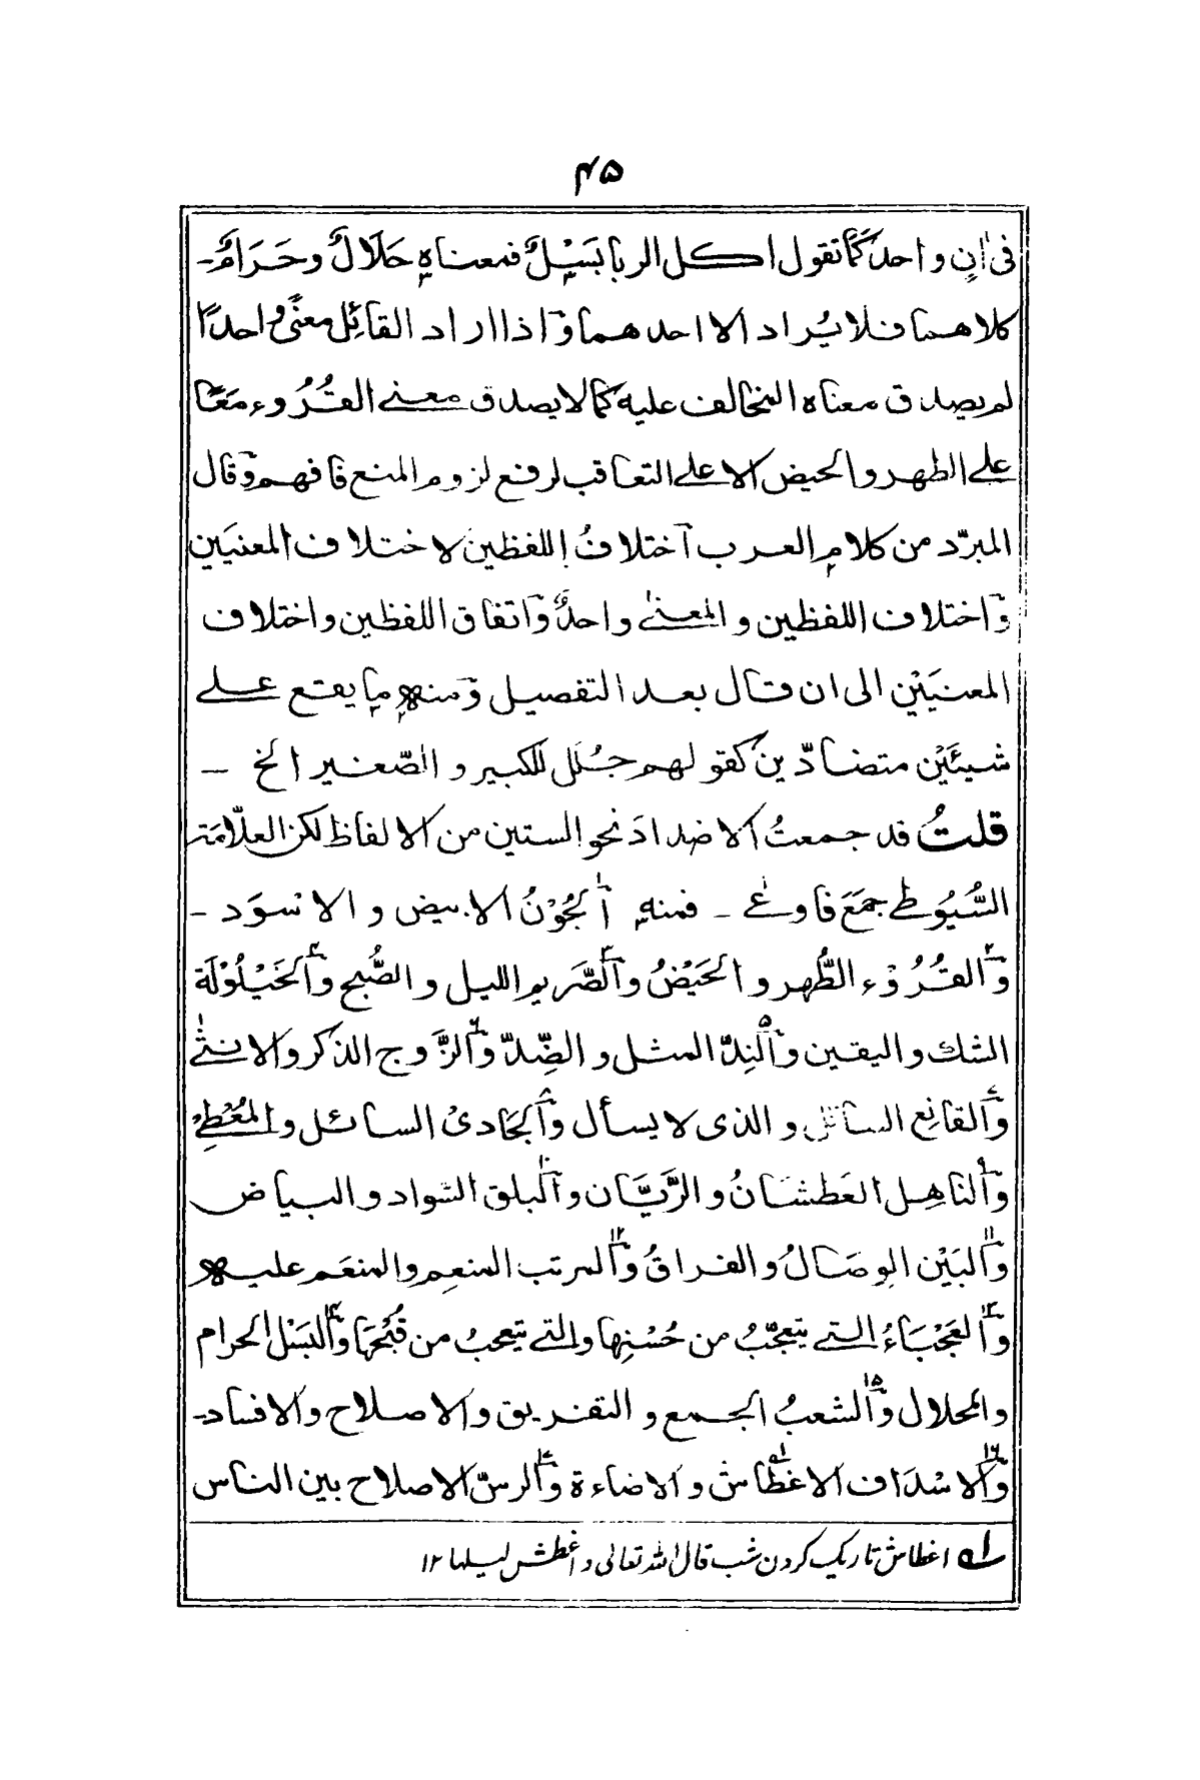 ۴۵
فی اٰنٍ واحدٍ كَمَا تقول اكل الربا بَسْلٌ فمعناه حَلَالٌ وحَرَامٌ۔
كلاهما فلا يُراد الا احدهما وَاذا اراد القائِل معنًى واحدًا
لم يصدق معناه المخالف عليه كما لا يصدق معنے القُرُوء مَعًا
علے الطهر والحيض الا علے التعاقب لرفع لزوم المنع فافهم وَقال
المبرّد من كلام العرب اختلافُ اللفظين لاختلاف المعنيَين
وَاختلاف اللفظين والمعنىٰ واحدٌ وَاتفاق اللفظين واختلاف
المعنيَيْن الى ان قال بعد التفصيل وَمنهم ما يقع علے
شيئَيْن متضادّين كقولهم جُلَل للكبير والصّغير الخ ـ
قلتُ قد جمعتُ الاضدادَ نحو الستين من الالفاظ لكن العلّامة
السُّيُوطے جَمَعَ فاوعٰے ـ فمنه ۱ اَلجُوْنُ الابيض والاسْوَد ـ
۲ وَالقُرُوْء الطُّهر والحَيْضُ ۳ وَالصَّريم الليل والصُّبح ۴ وَالخَيْلُوْلَة
الشك واليقين ۵ وَالنِدّ المثل والضِّدّ ۶ وَالزَّوج الذكر والانثےٰ
۷ وَالقانِع السائل والذى لا يسأل ۸ وَالجَادىْ السائل والمُعْطِےْ
۹ وَالنَاهِل العَطشَانُ والرَّيَّان ۱۰ وَالبلق السّواد والبياض
۱۱ وَالبَيْن الوِصَالُ والفراقُ ۱۲ وَالمرتب المنعِم والمنعَم عليه
۱۳ وَالعَجْبَاءُ التے يتعجّبُ من حُسْنِها والتے يتعجبُ من قُبْحِهَا ۱۴ وَالبَسْل الحرام
والحلال ۱۵ وَالشعبُ الجمع والتفريق والاصلاح والافساد۔
۱۶ وَالاسْدَاف الاغطَاش۱ والاضاءة ۱۷ وَالرسّ الاصلاح بين الناس
۱ه اغطاش تاریک کردن شب قال اللہ تعالی واغطش لیلها ۱۲